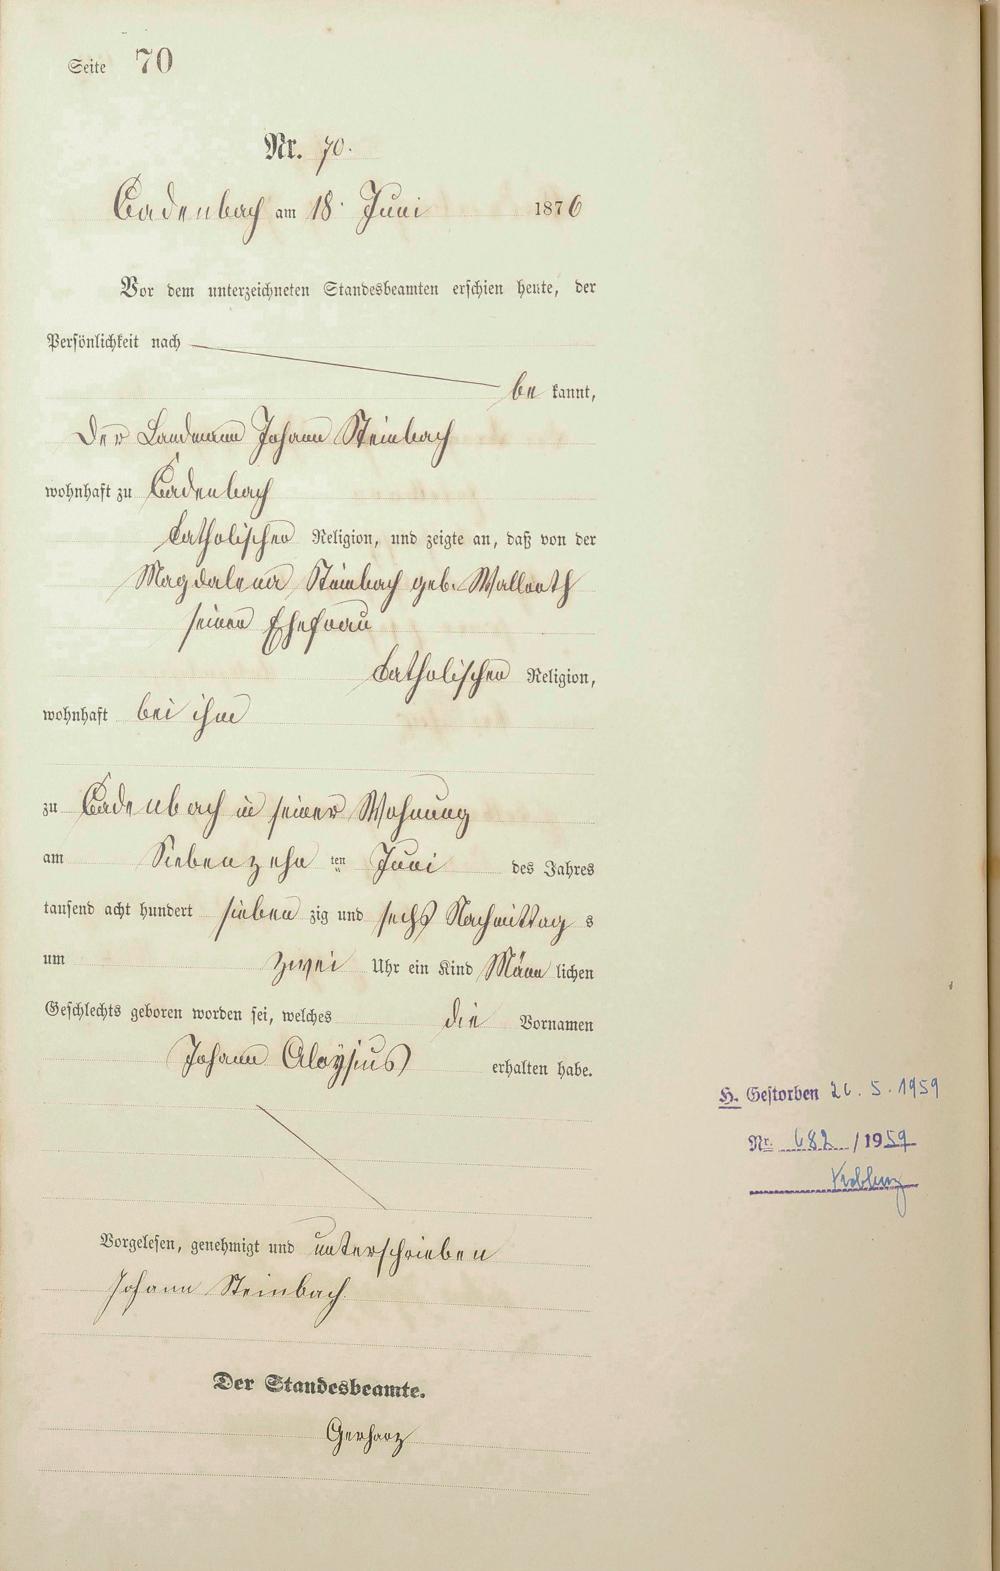 Seite 70
Nr. 70.
Cadenbach am 18. Juni 1876
Vor dem unterzeichneten Standesbeamten erschien heute, der
Persönlichkeit nach
be kannt,
der Landmann Johann Steinbach
wohnhaft zu Cadenbach
katholischer Religion, und zeigte an, daß von der
Magdalena Steinbach geb. Wallroth
seiner Ehefrau
katholischer Religion,
wohnhaft bei ihm
zu Cadenbach in seiner Wohnung
am Siebenzehn ten Juni des Jahres
tausend acht hundert sieben zig und sechs Nachmittag s
um zwei Uhr ein Kind Männ lichen
Geschlechts geboren worden sei, welches die Vornamen
Johann Aloysius erhalten habe.
H. Gestorben 26.5.1959
Nr. 682 /1959
Koblenz
Vorgelesen, genehmigt und unterschrieben
Johann Steinbach
Der Standesbeamte.
Gerharz